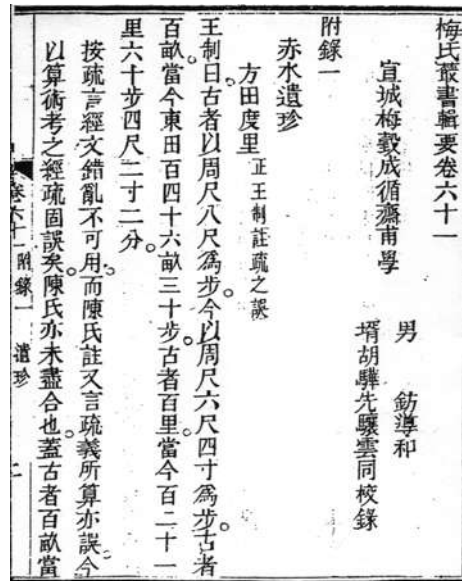 梅氏叢書輯要卷六十一
宣城梅瑴成循齋甫學
男 鈁導和
壻胡驊先驤雲同校錄
附錄一
赤水遺珍
方田度里正王制註疏之誤
王制曰古者以周尺八尺爲步今以周尺六尺四寸爲步古者
百畝當今東田百四十六畝三十步古者百里當今百二十一
里六十步四尺二寸二分
按疏言經文錯亂不可用而陳氏註又言疏義所算亦誤今
以算術考之經疏固誤矣陳氏亦未盡合也蓋古者百畝當
卷六十一附錄一 遺珍